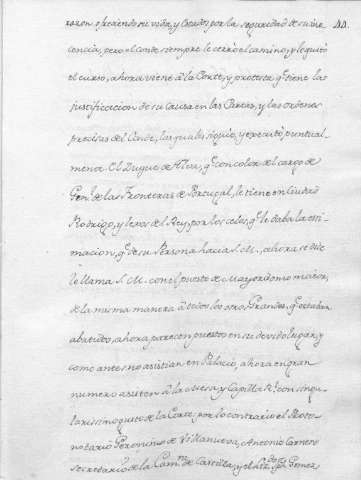 razon ofreciendo su vida, y Estados por la seguridad de su ino
cencia, pero el conde siempre le cerró el camino, y le quitó
el curso, ahora viene à la Corte, y protesta qe. tiene las
justificacion de su Causa en las Cartas, y las ordenes
precisas del Conde, las quales siguio, y executó puntual-
mente. El Duque de Alva, qe. con color del cargo de
Genl. de las Fronteras de Portugal, le tiene en Ciudad
Rodrigo, y lexos del Rey, por los celos, qe. le daba la esti-
macion, qe. de su Persona hacia S. M., ahora se dice
le llama S. M. con el puesto de Mayordomo maior,
de la misma manera à todos los otros Grandes, qe. estaban
abatidos, ahora parecen puestos en su devido lugar, y
como antes no asistian en Palacio, ahora en gran
numero asisten à la Mesa, y Capilla Rl. con singu-
larissimo gusto de la Corte, por lo contrario el Proto-
notario Geronimo de Villanueva, Antonio Carnero
secretario de la Camra. de Castilla, y el Josph Gomez